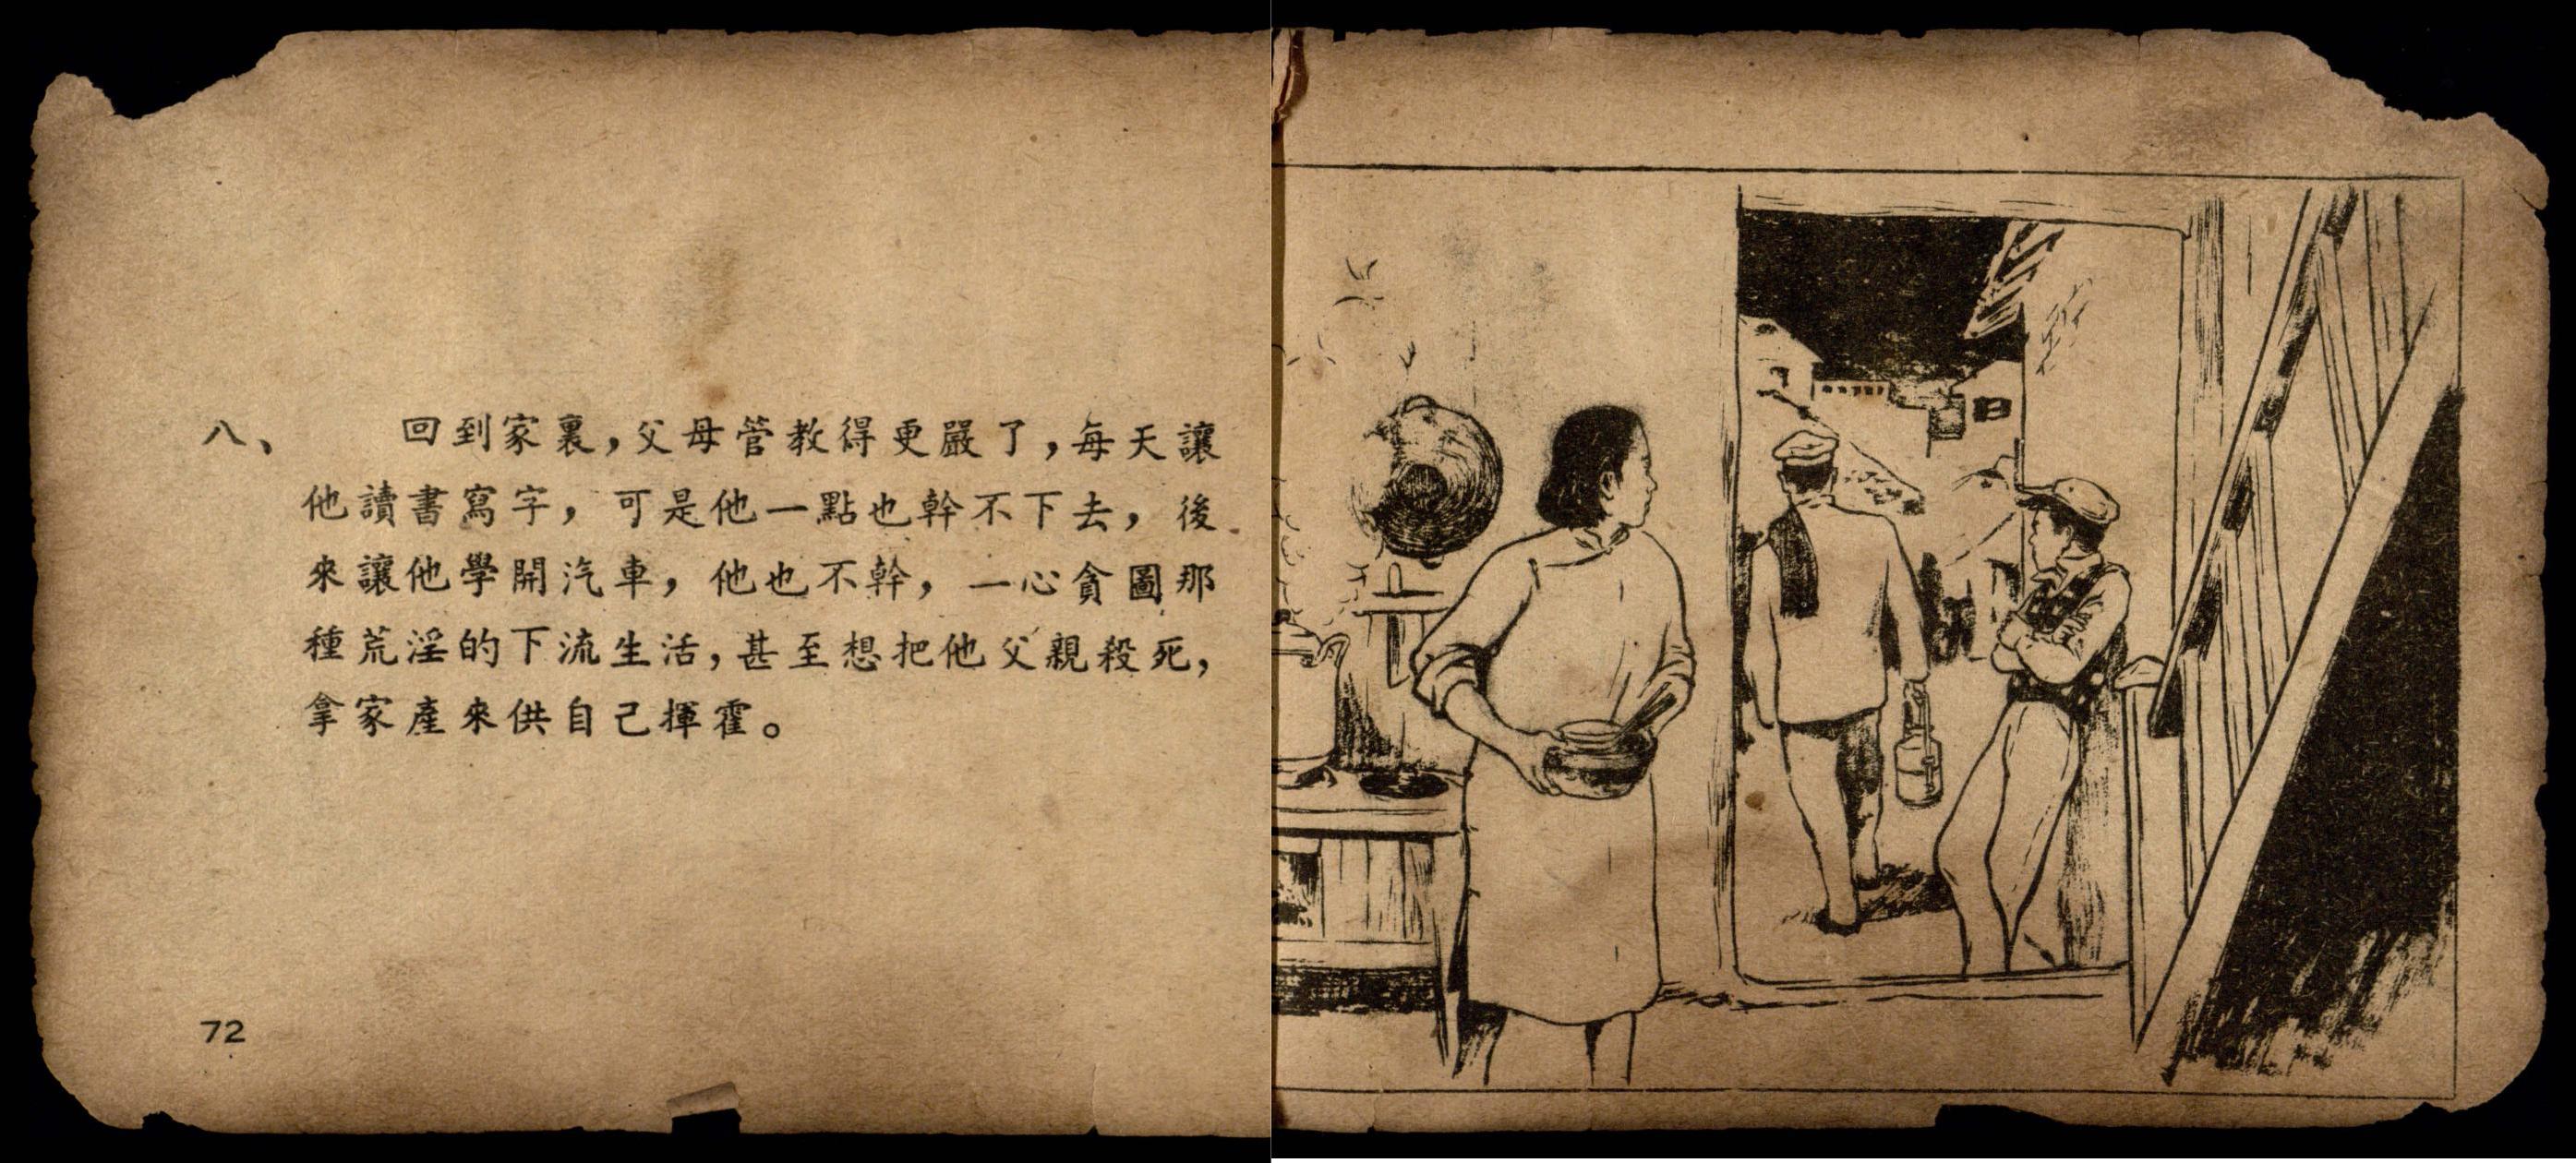 八、 回到家裏，父母管教得更嚴了，每天讓
他讀書寫字，可是他一點也幹不下去，後
來讓他學開汽車，他也不幹，一心貪圖那
種荒淫的下流生活，甚至想把他父親殺死，
拿家產來供自己揮霍。
72